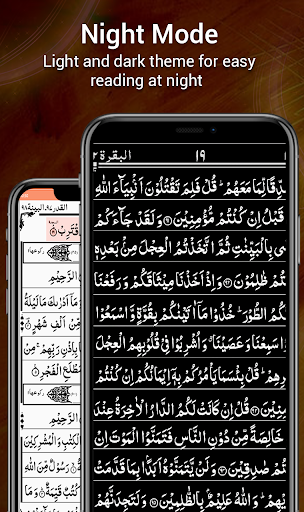 Night Mode
Light and dark theme for easy
reading at night
البقرة ٢
١٩
دِّقًا لِّمَا مَعَهُمْ ؕ قُلْ فَلِمَ تَقْتُلُوْنَ اَنْۢبِيَآءَ اللّٰهِ
قَبْلُ اِنْ كُنْتُمْ مُّؤْمِنِيْنَ ۝ وَلَقَدْ جَآءَكُمْ
ى بِالْبَيِّنٰتِ ثُمَّ اتَّخَذْتُمُ الْعِجْلَ مِنْۢ بَعْدِهٖ
تُمْ ظٰلِمُوْنَ ۝ وَاِذْ اَخَذْنَا مِيْثَاقَكُمْ وَرَفَعْنَا
كُمُ الطُّوْرَ ؕ خُذُوْا مَاۤ اٰتَيْنٰكُمْ بِقُوَّةٍ وَّاسْمَعُوْا
ا سَمِعْنَا وَعَصَيْنَا ۗ وَاُشْرِبُوْا فِيْ قُلُوْبِهِمُ الْعِجْلَ
هِمْ ؕ قُلْ بِئْسَمَا يَاْمُرُكُمْ بِهٖۤ اِيْمَانُكُمْ اِنْ كُنْتُمْ
نَ ۝ قُلْ اِنْ كَانَتْ لَكُمُ الدَّارُ الْاٰخِرَةُ عِنْدَ
خَالِصَةً مِّنْ دُوْنِ النَّاسِ فَتَمَنَّوُا الْمَوْتَ اِنْ
تُمْ صٰدِقِيْنَ ۝ وَلَنْ يَّتَمَنَّوْهُ اَبَدًۢا بِمَا قَدَّمَتْ
هِمْ ؕ وَاللّٰهُ عَلِيْمٌۢ بِالظّٰلِمِيْنَ ۝ وَلَتَجِدَنَّهُمْ
القدر ٩٧، البينة ٩٨
قْتَرِبْ
الرَّحِيْمِ
مَاۤ اَدْرٰىكَ مَا لَيْلَةُ
مِّنْ اَلْفِ شَهْرٍ
بِاِذْنِ رَبِّهِمْ ۚ مِنْ
مَطْلَعِ الْفَجْرِ
الرَّحِيْمِ
الْكِتٰبِ وَالْمُشْرِكِيْنَ
رَسُوْلٌ مِّنَ اللّٰهِ
كُتُبٌ قَيِّمَةٌ ؕ وَمَا